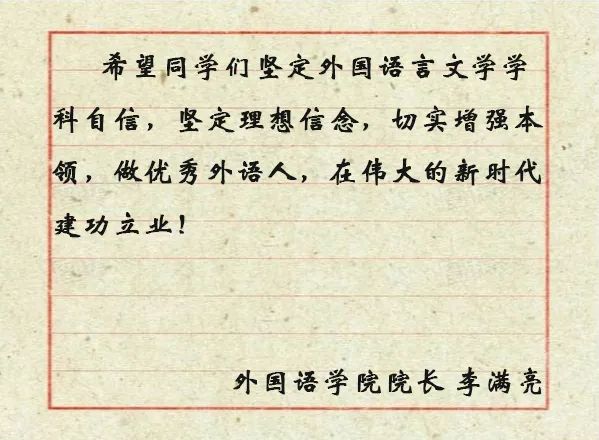 希望同学们坚定外国语言文学学
科自信，坚定理想信念，切实增强本
领，做优秀外语人，在伟大的新时代
建功立业！
外国语学院院长 李满亮